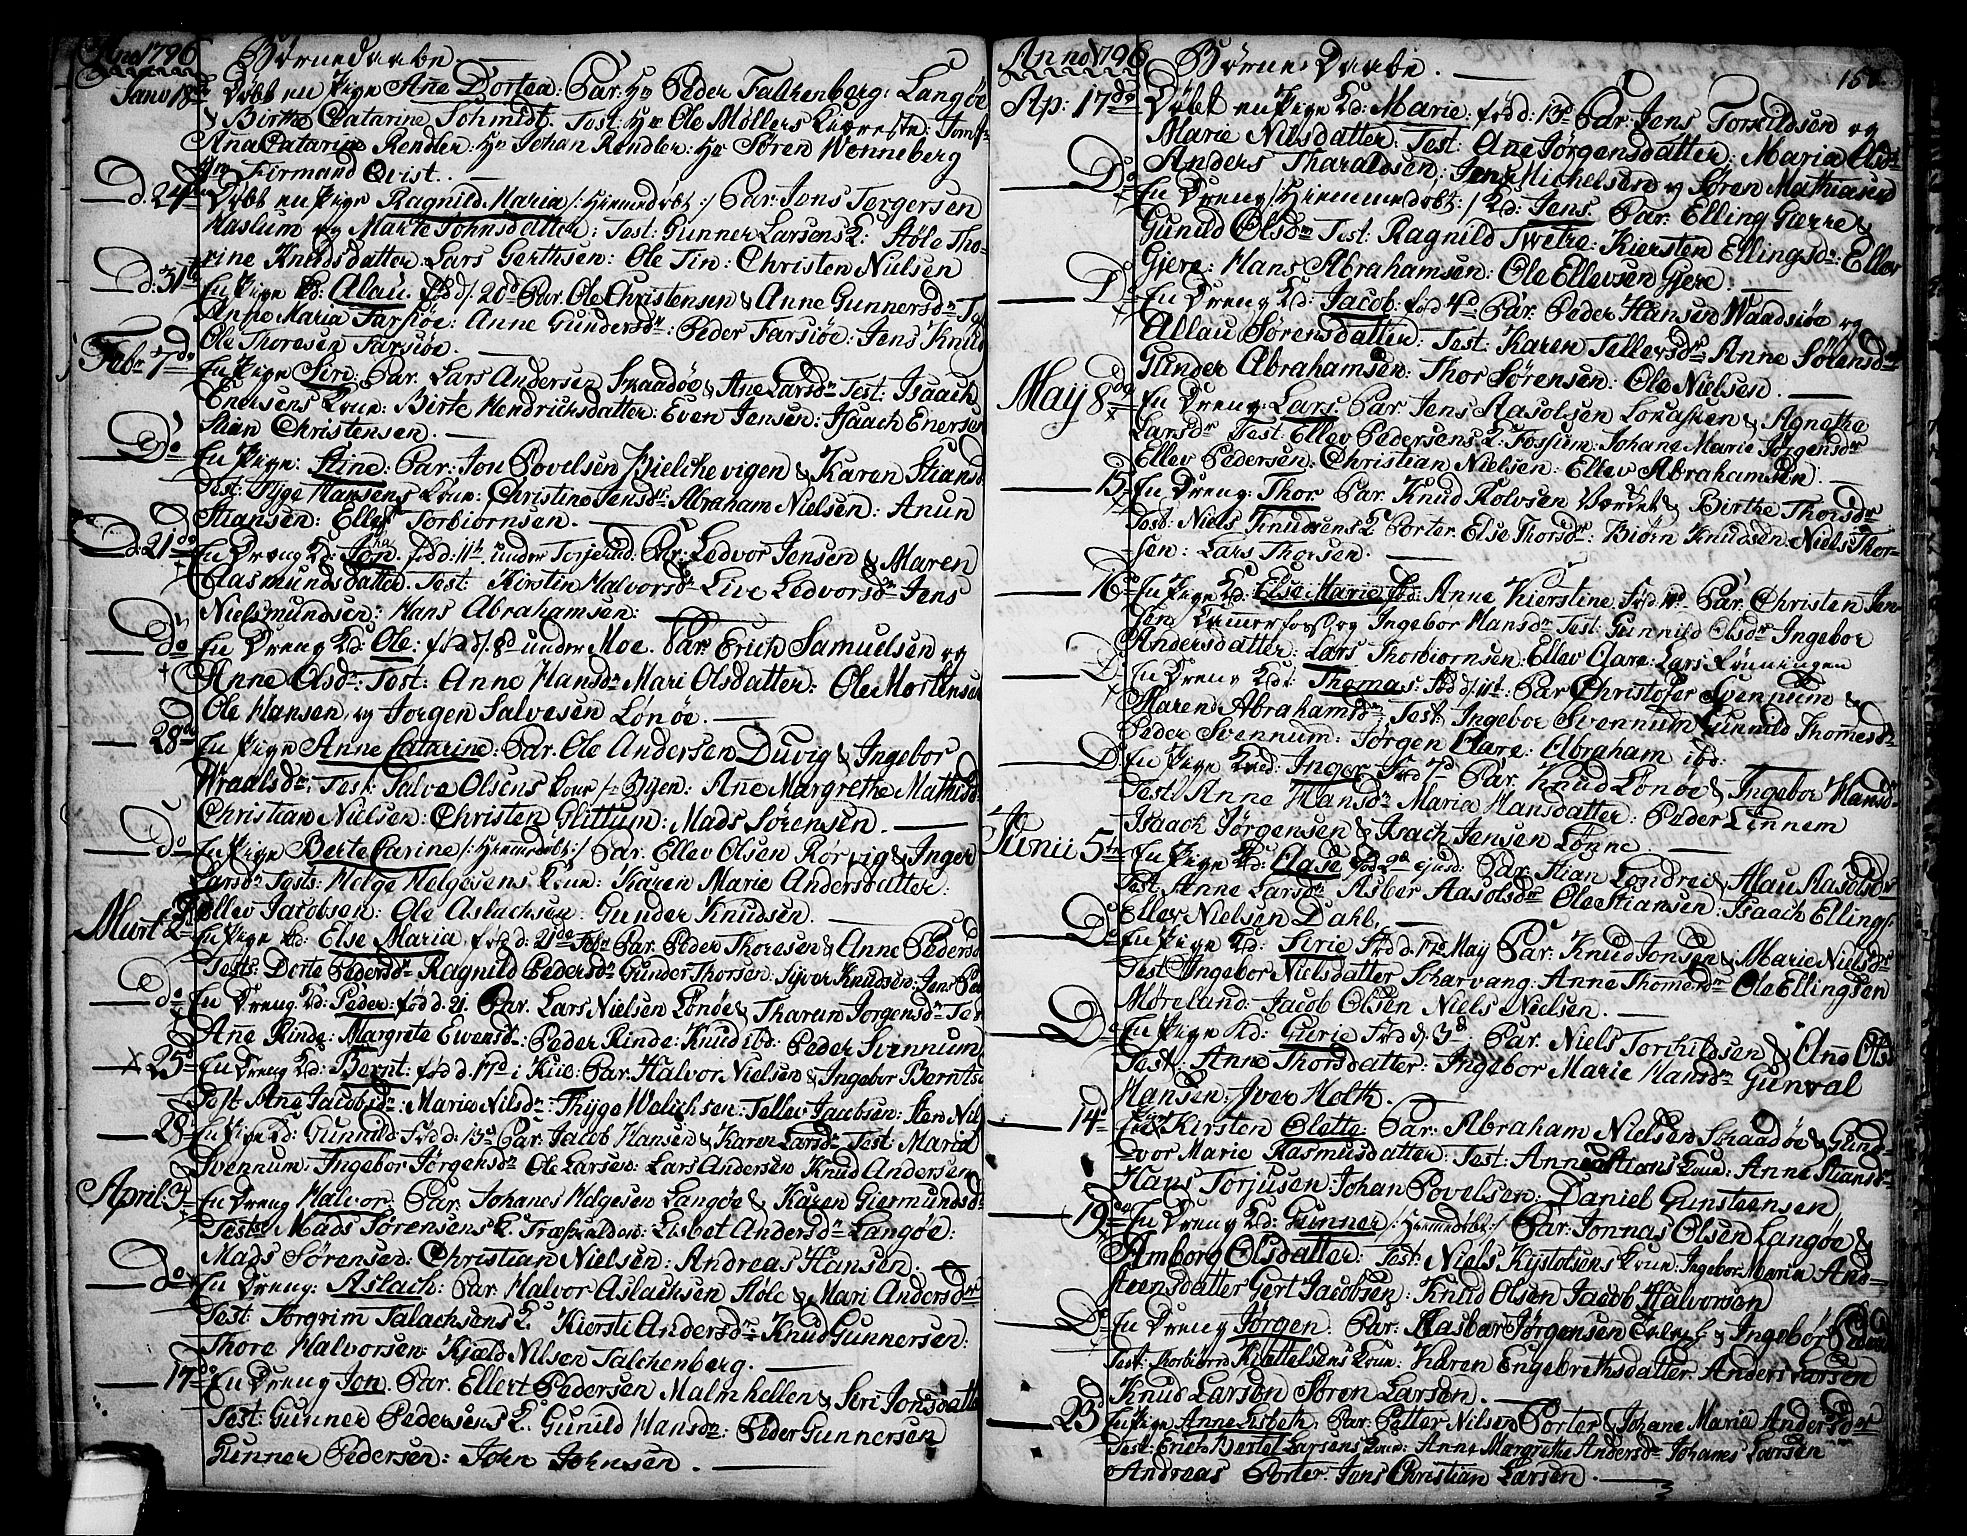 Ano 1796 Børnedaabe.
Janv 18 Døbt en Pige Ane Dortea: Par: Hr Peder Falchenberg: Langøe
& Birthe Catarine Schmidt. Test: Hr Ole Møllers Kiereste: Jomfr
Ana Catarine Rendler: Hr Johan Rendler: Hr Søren Wenneberg
Hr Firmand Qvist.
D. 24 Døbt en Pige Ragnild Maria /: Hiemedøbt :/ Par: Jens Tergersen
Haslum og Marte Johnsdatter: Test: Gunner Larsens K: Støle Tho-
rine Knudsdatter: Lars Gerthsen: Ole Tin: Christen Nielsen
D. 31 En Pige Kd: Alau. fød d. 20d Par: Ole Christensen & Anne Gunnersdr
Anne Maria Farsiøe: Anne Gundersdr: Peder Farsiøe: Jens Knud
Ole Thoresen Farsiøe.
Febr 7 do En Pige Siri: Par. Lars Andersen Skaadøe & Ane Larsdr Test: Isaach
Enersens Kone: Birte Hendrichsdatter: Even Jensen: Isaach Eners
Stian Christensen.
Do En Pige: Stine: Par: Jon Povelsen Bielchevigen & Karen Stiansd
Test: Pyge Hansens Kone: Christine Jensdr Abraham Nielsen: Anun
Stiansen: Ellef Torbiornsen.
D. 21 do En Dreng Kd: Jon. fød d. 11t under Torjerud: Par. Ledvor Jensen & Maren
Aasmundsdatter. Test: Kirstin Halvorsdr Live Ledvorsdr Jens
Nielsmundsen: Hans Abrahamsen:
Do En Dreng Kd: Ole: fød d. 8d under Moe. Par: Erich Samuelsen og
Anne Olsdr: Test: Anne Hansdr Mari Olsdatter: Ole Mortensen
Ole Hansen og Jorgen Salvesen Lønøe.
28 do En Pige Anne Catarine: Par. Ole Andersen Duvig & Ingebor
Wraalsdr. Test: Salve Olsens Kone i Byen: Ane Margrethe Mathisd
Christian Nielsen: Christen Glittum: Mads Sørensen.
Do En Pige Berte Carine /: Hiemedøbt :/ Par. Ellev Olsen Rørvig & Inger
Larsdr Tests: Helge Helgesens Kone: Karen Marie Andersdatter:
Ellev Jacobsen: Ole Aslachsen: Gunder Knudsen.
Mart 2 En Pige Kd: Else Maria. fød d: 21de Febr Par: Peder Thoresen & Anne Pedersd
Tests: Dorte Pedersdr Ragnild Pedersdr Gunder Thorsen: Syver Knudsen: Jens Ped
do En Dreng Kd: Peder: fød d. 21. Par. Lars Nielsen Lønøe & Tharan Jorgensdr
Ane Rinde: Margrete Ewensdr: Peder Rinde: Knud ibd: Peder Svennum
X 25 En Dreng Kd: Bernt: fød d. 17d i Kiie: Par: Halvor Nielsen & Ingebor Berntsd
Test Ane Jacobsdr: Marie Nilsdr: Thyge Walichsen: Tellev Jacobsen: Sten Nils
28 En Pige Kd: Gunnild: fød d: 13d Par: Jacob Hansen & Karen Larsdr Test: Maria
Svennum: Ingebor Jørgensdr Ole Larsen: Lars Andersen Knud Andersen
April 3 En Dreng Halvor. Par. Johanes Helgesen Langøe & Karen Giermundsdr
Test: Mads Sørensens K. Træskalden: Lisbet Andersdr Langøe:
Mads Sørensen: Christian Nielsen: Andreas Hansen.
do En Dreng: Aslach: Par Halvor Aslachsen Støle & Mari Andersdr
Test: Torgrim Talachsens K. Kiersti Andersdr Knud Gunnersen:
Thore Halvorsen: Kjæld Nilsen Talchenberg.
17 do En Dreng Jon. Par. Ellert Pedersen Malmhellen & Siri Jonsdatter
Test: Gunner Pedersens K. Gunild Hansdr: Peder Gunnersen
Gunner Pedersen: John Johnsen.
Anno 1796 Børne Daabe. 15
Ap: 17 do Døbt en Pige Kd: Marie: fød d: 13d Par: Jens Torkildsen og
Marie Nilsdatter: Test: Ane Jørgensdatter: Maria Olsdr
Anders Tharaldsen, Jens Michelsen og Søren Mathiasen
Do En Dreng /: Hiemmedøbt :/ Kd: Jens. Par. Elling Gierre &
Gunild Olsdr Test: Ragnild Twetre: Kiersten Ellingsdr: Ellev
Gjere: Hans Abrahamsen: Ole Ellevsen Gjere.
Do En Dreng Kd: Jacob: fød 4d Par: Peder Hansen Waadsiøe og
Allau Sørensdatter: Test: Karen Tellersdr Anne Sørensdr
Gunder Abrahamsen: Thor Sørensen: Ole Nielsen.
May 8 do En Dreng: Lars. Par Jens Aasolsen & Agnethe
Larsdr Test: Ellev Pedersens K: Fossum: Johane Marie Jørgensdr
Ellev Pedersen: Christian Nielsen: Ellev Abrahamsen.
15 En Dreng: Thor Par. Knud Rolvsen & Birthe Thorsdr
Test: Niels Knudsens K Porter. Else Thorsdr: Biørn Knudsen: Niels Thor-
sen: Lars Thorsen.
16 En Pige Kd: Else Marie Test: Anne Kierstine. fød 11d Par. Christen Jen-
sen Kamerfos og Ingebor Hansdr Test: Gunnild Olsdr Ingebor
Andersdatter: Lars Thorbiornsen: Ellev Aare: Lars Rønningen
D En Dreng Kd: Thomas: fød d. 11t: Par Christofer Svennum &
Maren Abrahamsdr, Test: Ingebor Svennum: Gunnild Thomesdr
Peder Svennum: Jorgen Aare: Abraham ibd:
Do En Pige Kd: Inger fød 7d Par. Knud Lønøe & Ingebor Hansdr
Test: Anne Hansdr Maria Hansdatter: Peder Linnem
Isaack Jørgensen & Isach Jensen Lønne.
Junii 5 En Pige Kd: Aase fød 2d ejusd: Par: Stian Londrei & Alau Aasolsdr
Test: Anne Larsdr Asber Aasolsdr Ole Stiansen: Isaach Ellings.
Ellev Nielsen Dahl.
Do En Pige Kd: Sirie fød d. 17d May Par: Knud Jonsen & Marie Nielsdr
Test Ingebor Nielsdatter Skarvang: Anne Thomesdr Ole Ellingsen
Møreland: Jacob Olsen Niels Nielsen.
Do En Pige Kd: Gurie fød d. 3d Par. Niels Torchildsen & Anne Olsd
Test: Anne Thorsdatter: Ingebor Marie Hansdr Gunval
Hansen: Iver Holth.
14 En Pige Kirsten Olette. Par: Abraham Nielsen Skaadøe & Gund-
vor Marie Rasmusdatter: Test: Anne Stians Kone: Anne Stiansdr
Hans Torjusen: Johan Povelsen: Daniel Gunsteensen
19 En Dreng Kd: Gunner /: Hiemedøbt :/ Par: Jonnas Olsen Langøe &
Amborg Olsdatter: Test: Niels Kistolsens Kone: Ingebor Maria And-
Steensdatter Gert Jacobsen: Knud Olsen Jacob Halvorsen
Do En Dreng Jørgen. Par: Aasbar Jørgensen & Ingebor
Test: Thorbiørn Kiettelsens Kone: Karen Engebrethsdatter. Anders Larsen
Knud Larsen Søren Larsen.
23 En Pige Anne Lisbeth. Par: Petter Nilsen Porter & Johane Maria Andersdr
Test: Erich Bertel Larsens Kone: Anne Margrethe Andersdr Johanes Laorsen
Andreas Porter. Jens Christian Larsen.